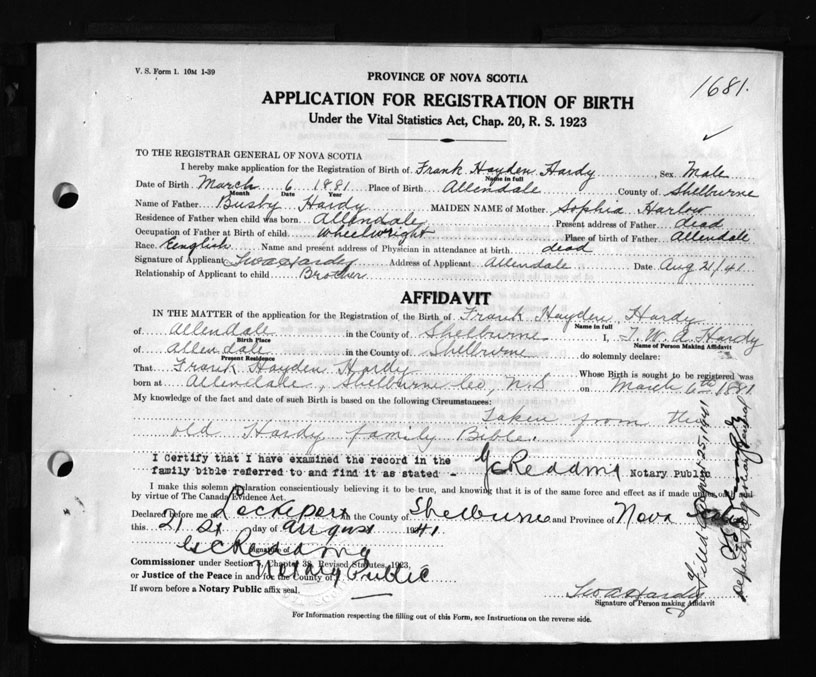 V. S. Form 1. 10M 1-39
PROVINCE OF NOVA SCOTIA
1681.
APPLICATION FOR REGISTRATION OF BIRTH
Under the Vital Statistics Act, Chap. 20, R. S. 1923
TO THE REGISTRAR GENERAL OF NOVA SCOTIA
I hereby make application for the Registration of Birth of Frank Hayden Hardy, Sex Male
Name in full
Date of Birth March 6 1881 Place of Birth Allendale County of Shelburne
Month Date Year
Name of Father Busby Hardy MAIDEN NAME of Mother Sophia Harlow
Residence of Father when child was born Allendale Present address of Father dead
Occupation of Father at Birth of child Wheelwright Place of birth of Father Allendale
Race English Name and present address of Physician in attendance at birth dead
Signature of Applicant Hardy Address of Applicant Allendale Date Aug 21/41
Relationship of Applicant to child Brother
AFFIDAVIT
IN THE MATTER of the application for the Registration of the Birth of Frank Hayden Hardy
Name in full
of Allendale in the County of Shelburne I, Hardy
Birth Place Name of Person Making Affidavit
of Allendale in the County of Shelburne do solemnly declare:
Present Residence
That Frank Hayden Hardy Whose Birth is sought to be registered was
born at Allendale, Shelburne Co, N.S on March 6th 1881
My knowledge of the fact and date of such Birth is based on the following Circumstances:
Taken from the
old Hardy family Bible.
I Certify that I have examined the record in the
family bible referred to and find it as stated - Notary Public
I make this solemn declaration conscientiously believing it to be true, and knowing that it is of the same force and effect as if made under oath and
by virtue of The Canada Evidence Act.
Declared before me at Lockeport in the County of Shelburne and Province of Nova Scotia
this 21st day of August 1941
Signature of
Commissioner under Section Chapter 38, Revised Statutes, 1923,
or Justice of the Peace in and for the County of Notary Public
If sworn before a Notary Public affix seal.
Hardy
Signature of Person making Affidavit
For Information respecting the filling out of this Form, see Instructions on the reverse side.
Filed 25, 1941
Deputy Registrar General